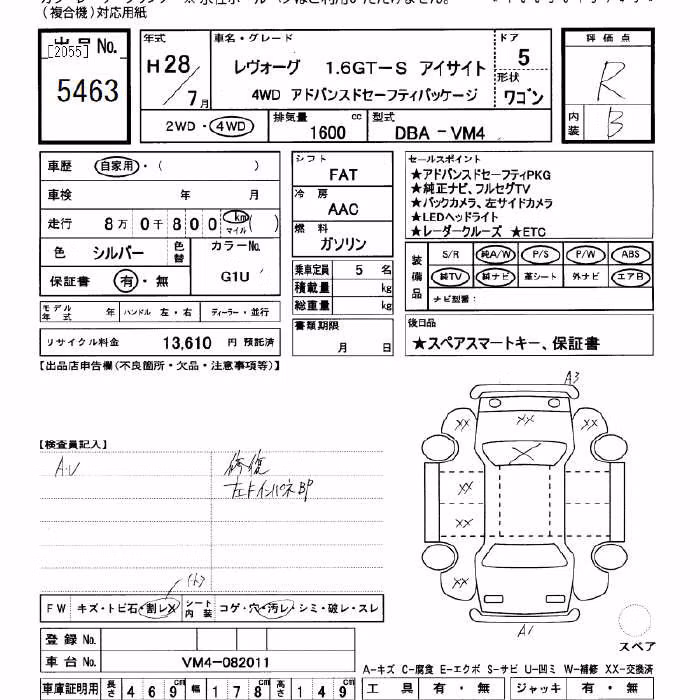 (複合機)対応用紙
出品No.
[2055]
5463
年式
H28/7月
車名・グレード
レヴォーグ 1.6GT-S アイサイト
4WD アドバンスドセーフティパッケージ
ドア
5
形状
ワゴン
評価点
R
内装
B
2WD・4WD
排気量 1600 cc
型式 DBA-VM4
車歴 自家用・( )
車検 年 月
走行 8万0千800 km マイル ( )
色 シルバー 色替
カラーNo. G1U
保証書 有・無
シフト
FAT
冷房
AAC
燃料
ガソリン
乗車定員 5 名
積載量 kg
総重量 kg
セールスポイント
★アドバンスドセーフティPKG
★純正ナビ、フルセグTV
★バックカメラ、左サイドカメラ
★LEDヘッドライト
★レーダークルーズ ★ETC
装備品
S/R 純A/W P/S P/W ABS
純TV 純ナビ 革シート 外ナビ エアB
ナビ型番:
モデル年式 年 ハンドル 左・右 ディーラー・並行
リサイクル料金 13,610 円 預託済
書類期限
月 日
後日品
★スペアスマートキー、保証書
【出品店申告欄(不良箇所・欠品・注意事項等)】
A3
XX
XX
XX
X
【検査員記入】
A・U
修復
左Fインパネ BP
XX
XX
XX
XX
FW キズ・トビ石・割レX シート内装 コゲ・穴・汚レ・シミ・破レ・スレ
A1
スペア
登録No.
車台No. VM4-082011
A-キズ C-腐食 E-エクボ S-サビ U-凹ミ W-補修 XX-交換済
車庫証明用 長さ 469cm 幅 178cm 高さ 149cm
工具 有・無 ジャッキ 有・無